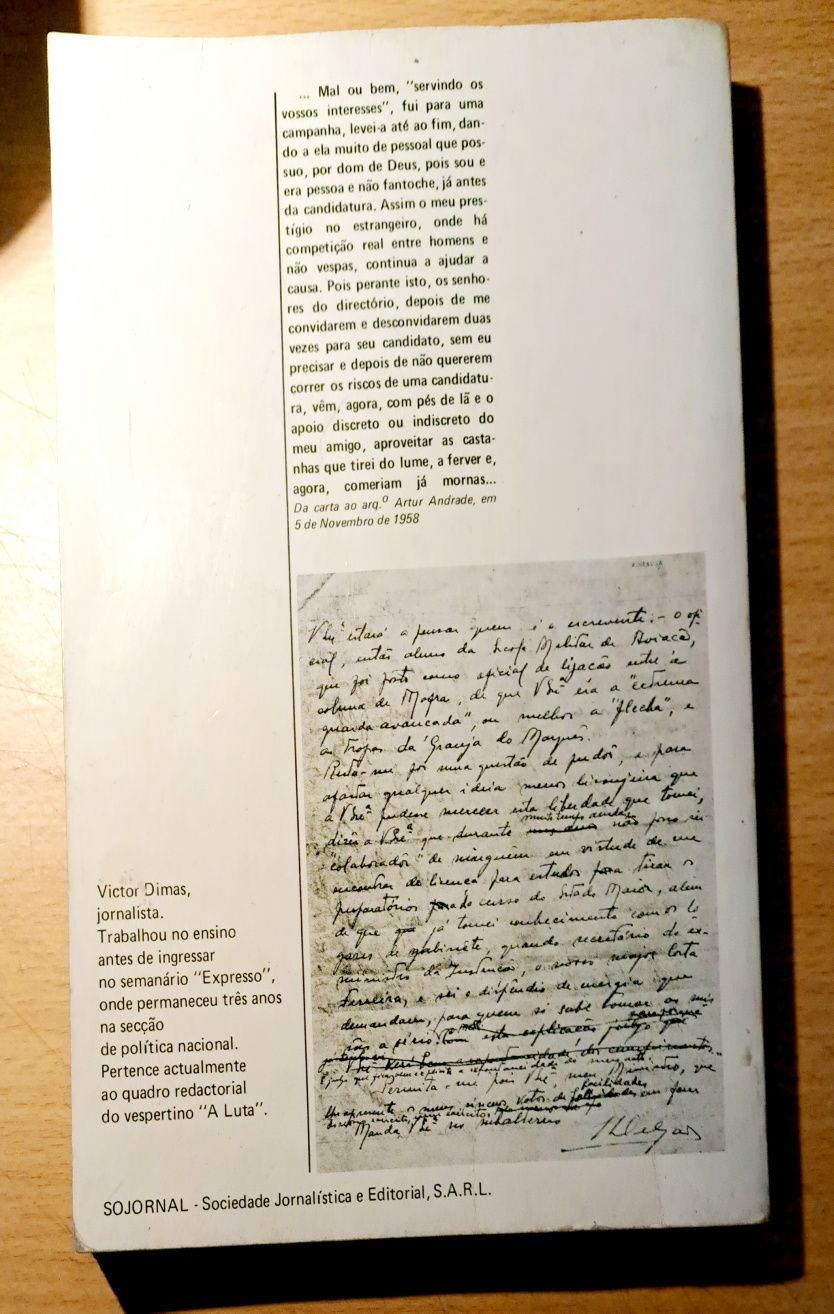 ... Mal ou bem, "servindo os
vossos interesses", fui para uma
campanha, levei-a até ao fim, dan-
do a ela muito de pessoal que pos-
suo, por dom de Deus, pois sou e
era pessoa e não fantoche, já antes
da candidatura. Assim o meu pres-
tígio no estrangeiro, onde há
competição real entre homens e
não vespas, continua a ajudar a
causa. Pois perante isto, os senho-
res do directório, depois de me
convidarem e desconvidarem duas
vezes para seu candidato, sem eu
precisar e depois de não quererem
correr os riscos de uma candidatu-
ra, vêm, agora, com pés de lã e o
apoio discreto ou indiscreto do
meu amigo, aproveitar as casta-
nhas que tirei do lume, a ferver e,
agora, comeriam já mornas...
Da carta ao arq.º Artur Andrade, em
5 de Novembro de 1958
V. Exª estará a pensar quem é o escrevente: - o ofi-
cial, então aluno da Escola Militar de Aviação,
que foi posto como oficial de ligação entre a
coluna de Mafra, de que V. Exª era a "extrema
guarda avançada", ou melhor a "flecha", e
as Tropas da Granja do Marquês.
foi uma questão de pudor, e para
afastar qualquer ideia menos lisonjeira que
a V. Exª pudesse merecer esta liberdade que tomei,
direi a V. Exª que durante muito tempo ainda não posso ser
"colaborador" de ninguém em virtude de me
encontrar de licença para estudos para tirar os
preparatórios do curso do Estado Maior, alem
de que já tomei conhecimento com os lo
gares de gabinete, quando secretário do ex-
ministro da Instrução, o nosso major Costa
Ferreira, e sei o dispêndio de energia que
demandam, para quem só sabe tomar as mis
sões a sério
Permita-me pois V. Exª, meu Ministro, que
Manda V. Exª no subalterno
HDelgado
Victor Dimas,
jornalista.
Trabalhou no ensino
antes de ingressar
no semanário "Expresso",
onde permaneceu três anos
na secção
de política nacional.
Pertence actualmente
ao quadro redactorial
do vespertino "A Luta".
SOJORNAL - Sociedade Jornalística e Editorial, S.A.R.L.